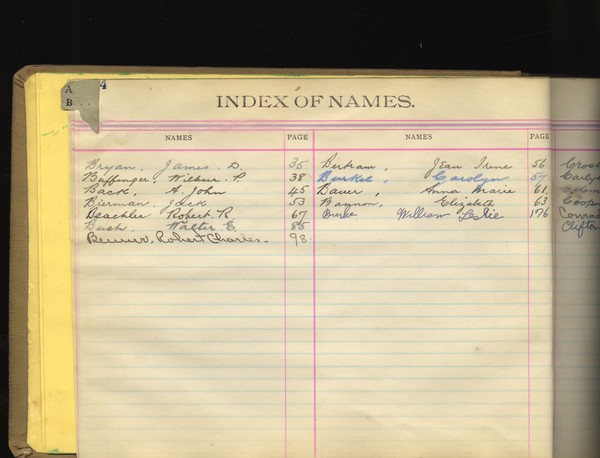 A
B
4
INDEX OF NAMES.
NAMES PAGE NAMES PAGE
Bryan, James. D. 35
Baffinger, Wilbur. P. 38
Back, A. John 45
Bierman, Jack 53
Beachler Robert. R 67
Bush, Walter E. 85
Robert Charles. 98.
Bertram, Jean Irene 56
Burkel, Carolyn 57
Bauer, Anna Marie 61
Bannon, Elizabeth 63
Burke William Leslie 176
Crosb
Carly
Coop
Conrad
Clifton